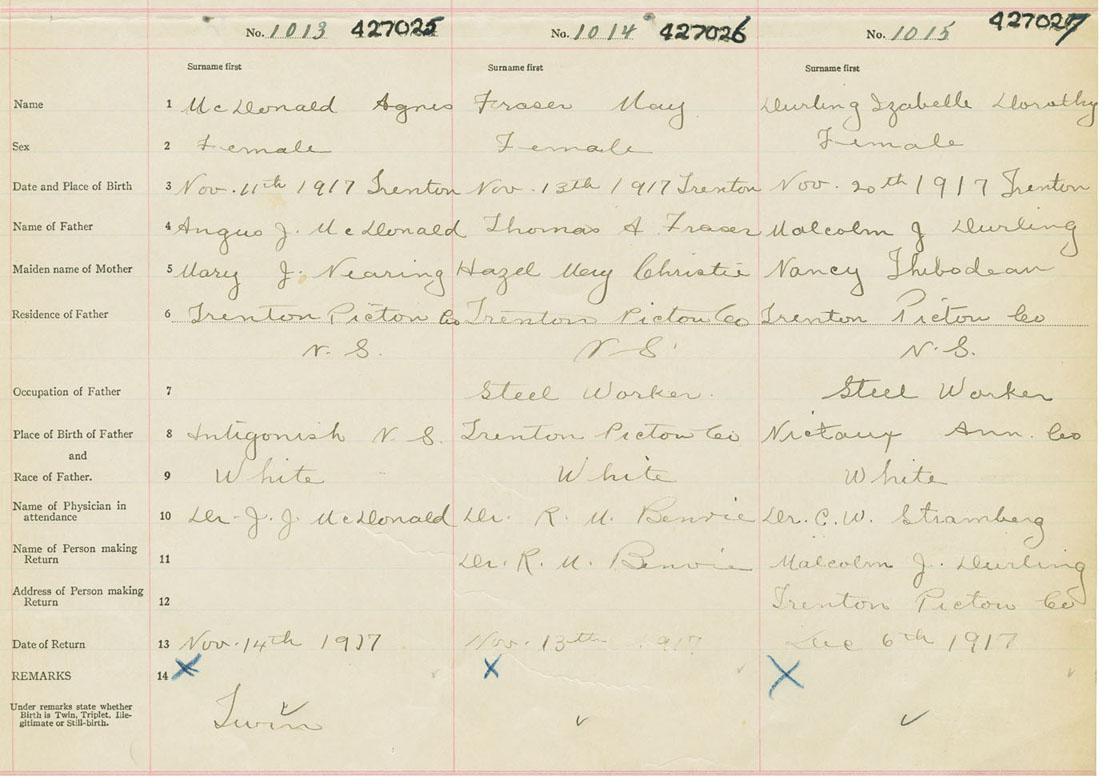 No. 1013 427025 No. 1014 427026 No. 1015 427027
Surname first Surname first Surname first
Name 1 McDonald Agnes Fraser May Durling Izabelle Dorothy
Sex 2 Female Female Female
Date and Place of Birth 3 Nov. 11th 1917 Trenton Nov. 13th 1917 Trenton Nov. 20th 1917 Trenton
Name of Father 4 Angus J. McDonald Thomas A Fraser Malcolm J Durling
Maiden name of Mother 5 Mary J. Nearing Hazel May Christie Nancy Thibodeau
Residence of Father 6 Trenton Picton Co Trenton Pictou Co Trenton Picton Co
N. S. N S. N. S.
Occupation of Father 7 Steel Worker. Steel Worker
Place of Birth of Father 8 Antigonish N. S. Trenton Pictou Co Nictaux Ann. Co
and
Race of Father. 9 White White White
Name of Physician in
attendance 10 Dr. J. J. McDonald Dr. R. M. Benvie Dr. C. W. Stramberg
Name of Person making
Return 11 Dr. R. M. Benvie Malcolm J. Durling
Address of Person making
Return 12 Trenton Picton Co
Date of Return 13 Nov. 14th 1917 Nov. 13th 1917 Dec 6th 1917
REMARKS 14
Under remarks state whether
Birth is Twin, Triplet, Ille-
gitimate or Still-birth.
Twin